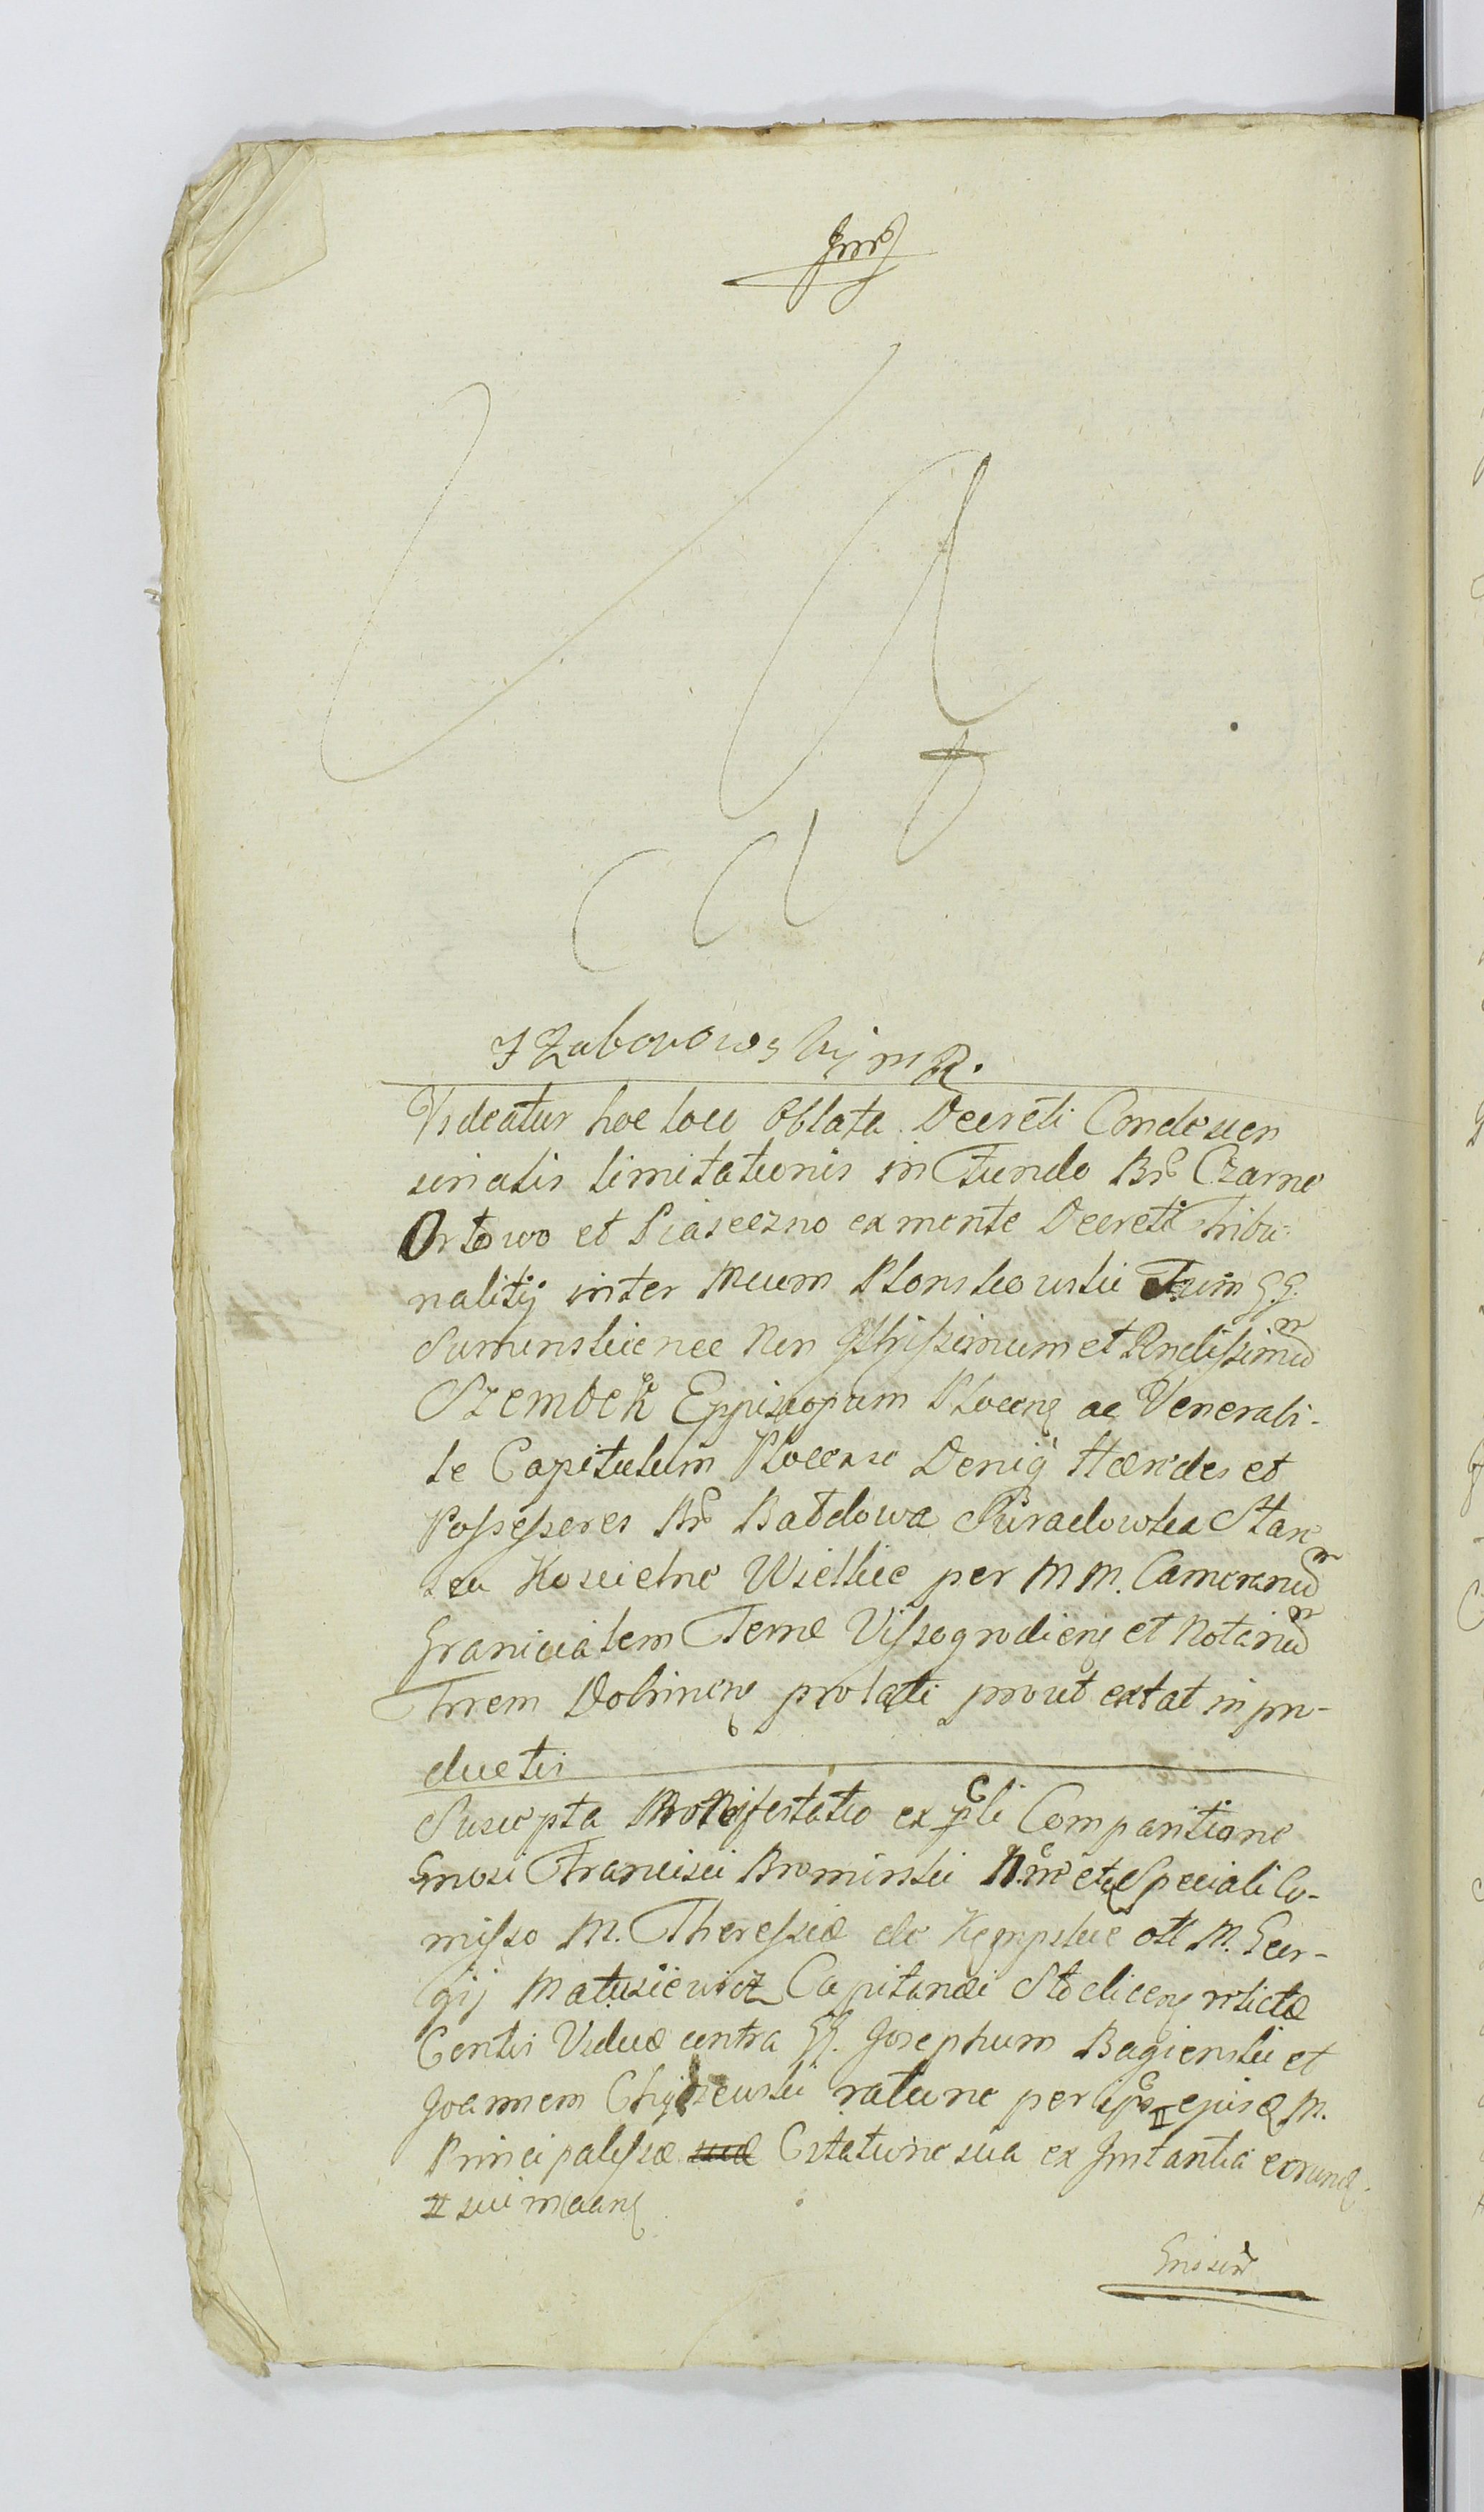 J Zaborowskij mR.
Videatur hoc loco Oblata Decreti Condescen
sorialis limitationis in Fundo Br̃ Czarne
Orłowo et Piaseczno ex mente Decreti Tribu-
nalitij inter Mcum Płonskowski Tum G.G.
Suminskie nec Non Jllrissimum et Rndissimũ
Szembek Eppiscopum Plocen̨ ac Venerabi-
le Capitulum Plocense Deniq̨ Hæredes et
Possessores Br̃ Bąddowa Suradowka Stare
sea Koscielne Wielkie per M M. Camerariũ
Granicialem Terræ Vissogrodien̨ et Notariũ
Trrem Dobrinen̨ prolati prout extat in pro-
ductis
Suscepta Manifestatio ex p̃li Comparitione
Gnosi Francisci Bromirski Nm̃e et Speciali Co-
misso M. Theressiæ de Kempskie olt̃ M. Geor-
gij Matusiewicz Capitanei Stoklicen̨ relictæ
Consortis Viduæ contra GG. Josephum Bagienski et
Joannem Chyczewski ratione per ip̃os II ejusd M.
Principalissæ Citatione sua ex Jnstantia eorund
II sui in
Gnosũ